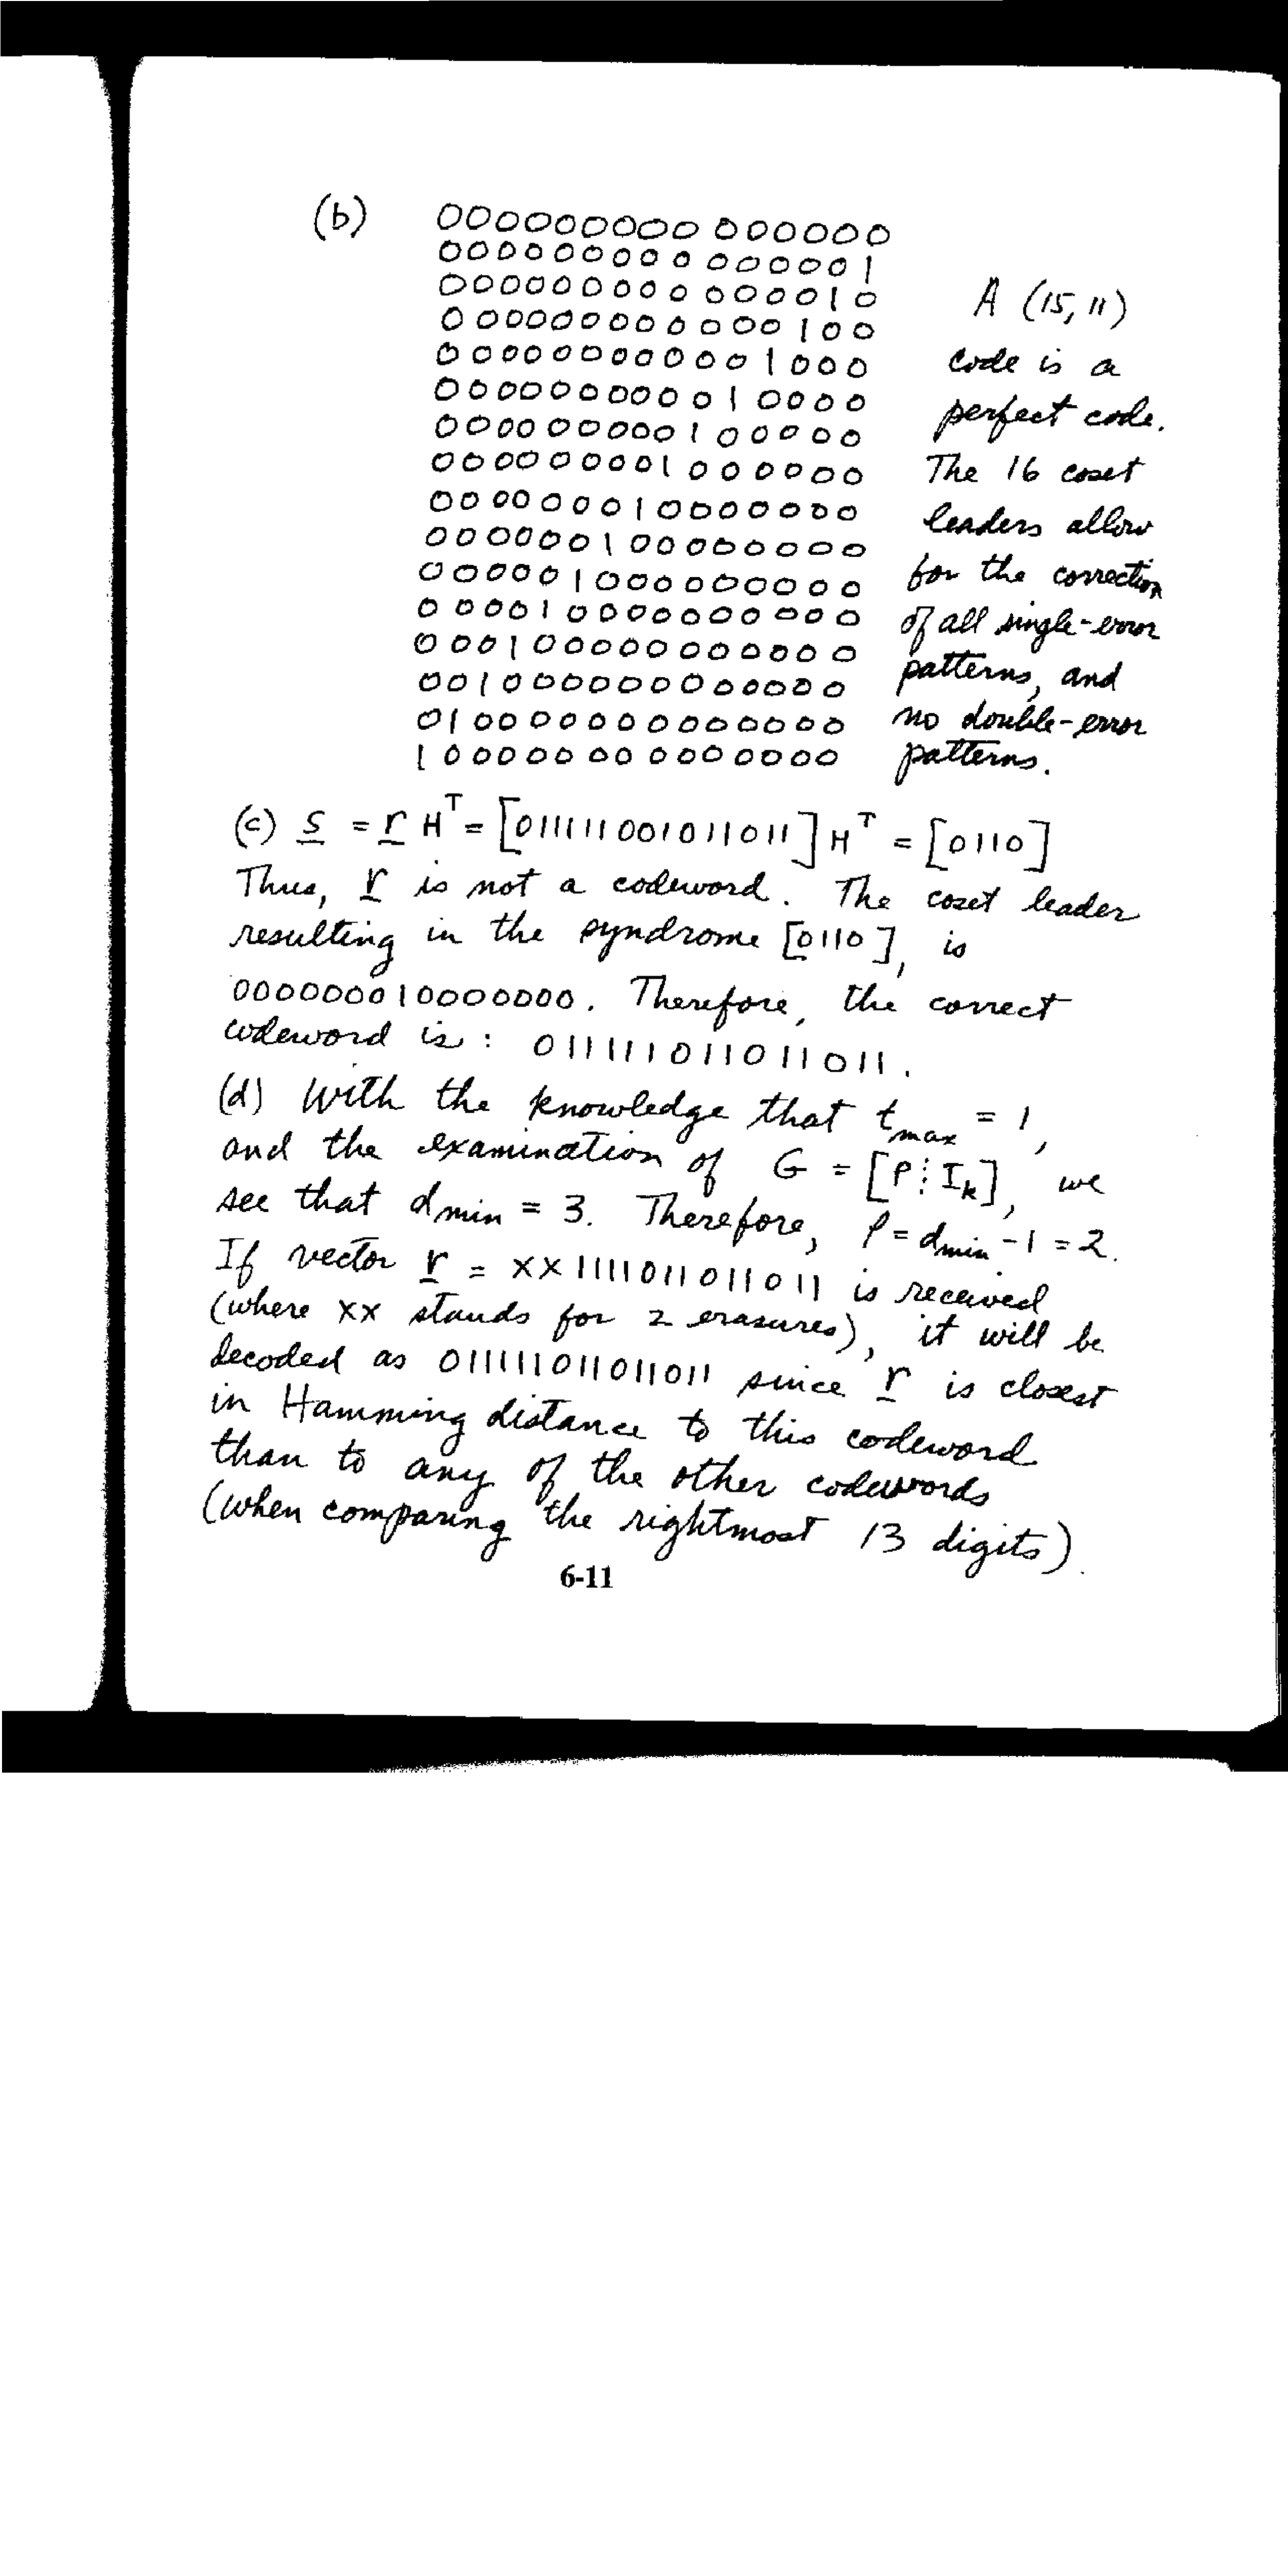 (b)
000000000000000
000000000000001
000000000000010
000000000000100
000000000001000
000000000010000
000000000100000
000000001000000
000000010000000
000000100000000
000001000000000
000010000000000
000100000000000
001000000000000
010000000000000
100000000000000
A (15, 11)
code is a
perfect code.
The 16 coset
leaders allow
for the correction
of all single-error
patterns, and
no double-error
patterns.
(c) S = r H^T = [011111001011011] H^T = [0110]
Thus, r is not a codeword. The coset leader
resulting in the syndrome [0110], is
000000010000000. Therefore, the correct
codeword is: 011111011011011.
(d) With the knowledge that t_max = 1,
and the examination of G = [P⋮I_k], we
see that d_min = 3. Therefore, ρ = d_min - 1 = 2.
If vector r = XX1111011011011 is received
(where XX stands for 2 erasures), it will be
decoded as 011111011011011 since r is closest
in Hamming distance to this codeword
than to any of the other codewords
(when comparing the rightmost 13 digits).
6-11